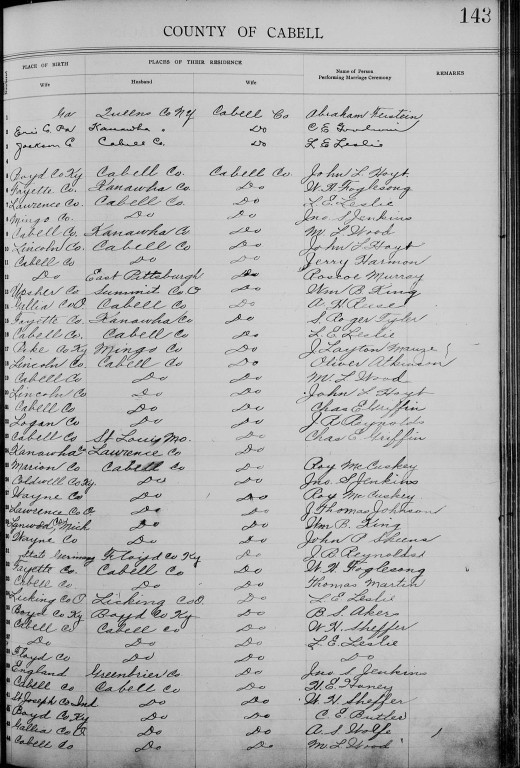 143
COUNTY OF CABELL
PLACE OF BIRTH PLACES OF THEIR RESIDENCE
Wife Husband Wife Name of Person Performing Marriage Ceremony REMARKS
Queens Co NY Cabell Co Abraham
Erie C. Pa Kanawha " Do C E
Jackson C Cabell Co. Do L E Leslie
Boyd Co Ky Cabell Co. Cabell Co. John L Hoyt
Fayette Co. Kanawha Co. Do W. H Foglesong
Lawrence Co. Cabell Co. Do L. E. Leslie
Mingo Co. Do Do Jno S Jenkins
Cabell Co. Kanawha Co Do M. L Wood
Lincoln Co. Cabell Co Do John L Hoyt
Cabell Co Do Do Jerry Harmon
Do East Pittsburgh Do Roscoe Murray
Upshur Co Summit Co. O Do Wm B. King
Gallia Co O. Cabell Co Do A. H
Fayette Co. Kanawha Co Do S. Roger Tyler
Cabell Co. Cabell Co Do L E Leslie
Pike Co Ky Mingo Co Do J Layton
Lincoln Co. Cabell Co Do Oliver Atkinson
Cabell Co Do Do M. L Wood
Lincoln Co Do Do John L Hoyt
Cabell Co Do Do Chas E Griffin
Logan Co Do Do J. B Reynolds
Cabell Co St Louis Mo. Do Chas E. Griffin
Kanawha Lawrence Co Do
Marion Co Cabell Co Do Roy McCuskey
Caldwell Co Ky Do Do Jno. S Jenkins
Wayne Co Do Do Roy McCuskey
Lawrence Co O Do Do J Thomas Johnson
Mich Do Do Wm B. King
Wayne Co Do Do John P
Germany Floyd Co Ky Do J B Reynolds
Fayette Co. Cabell Co Do W. H Foglesong
Cabell Co Do Do Thomas Martin
Licking Co O Licking Co O. Do L E Leslie
Boyd Co Ky Boyd Co Ky Do B S. Akers
Cabell Co Cabell Co Do W. H. Sheffer
Do Do Do L. E. Leslie
Floyd Co Do Do Do
England Greenbrier Co Do Jno S Jenkins
Cabell Co Cabell Co Do H. E. Haney
St Joseph Co Ind Do Do W. H Sheffer
Boyd Co Ky Do Do C. E. Butler
Gallia Co O Do Do A. S Wolfe
Cabell Co Do Do M. L Wood